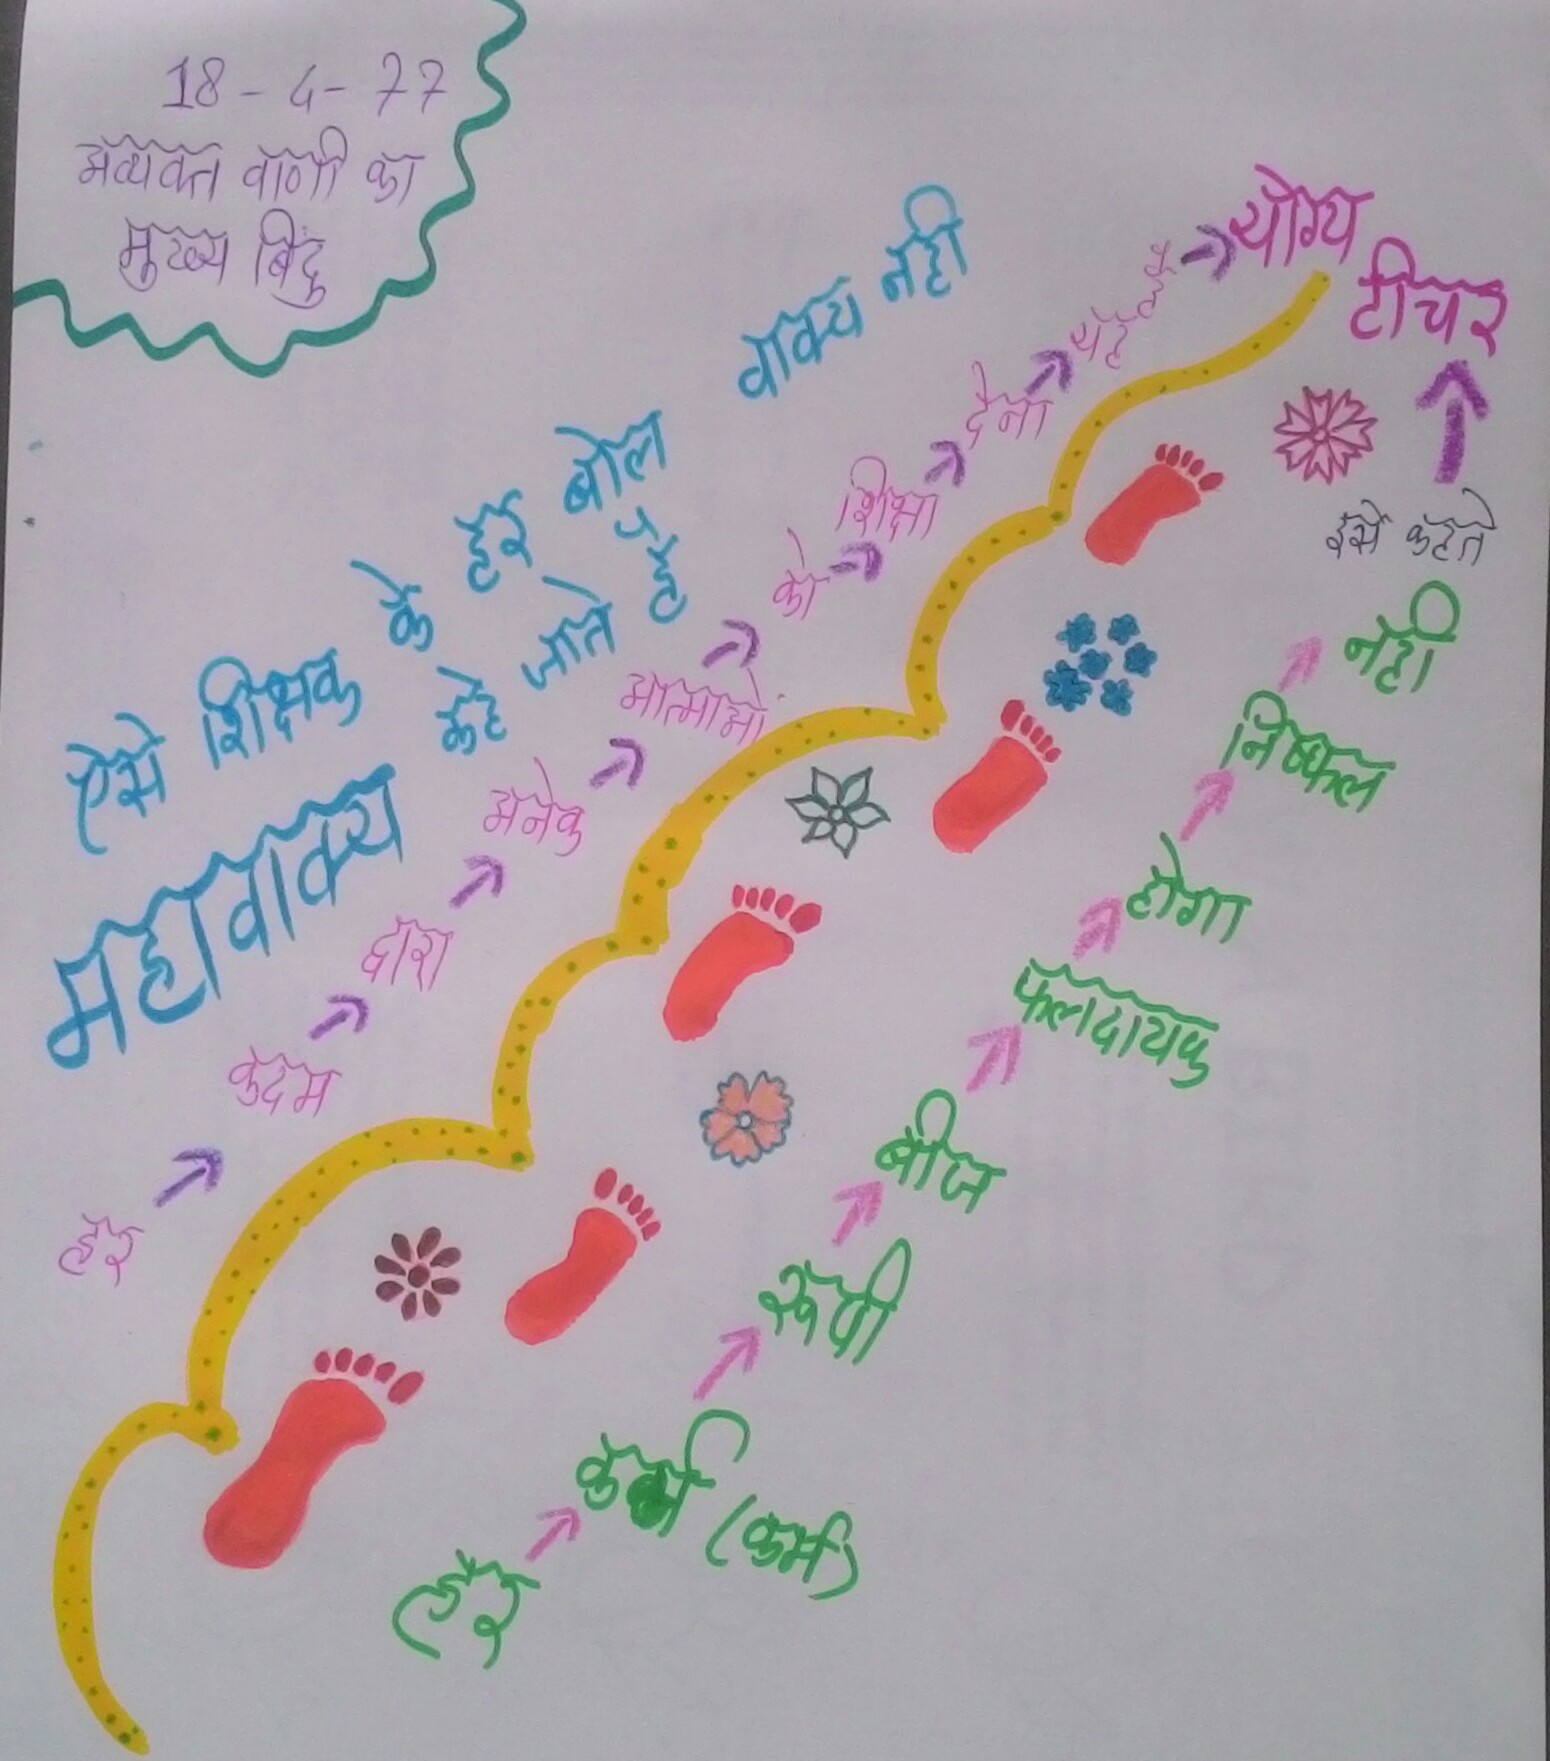 18-4-77
अव्यक्त वाणी का
मुख्य बिंदु
ऐसे शिक्षक के हर बोल वाक्य नही
महावाक्य कहे जाते है
हर → कदम → द्वारा → अनेक → आत्माओ → को → शिक्षा → देना → यह है → योग्य
टीचर
हर → कर्म (कर्म) → रूपी → बीज → फलदायक → होगा → निष्फल → नही
इसे कहते